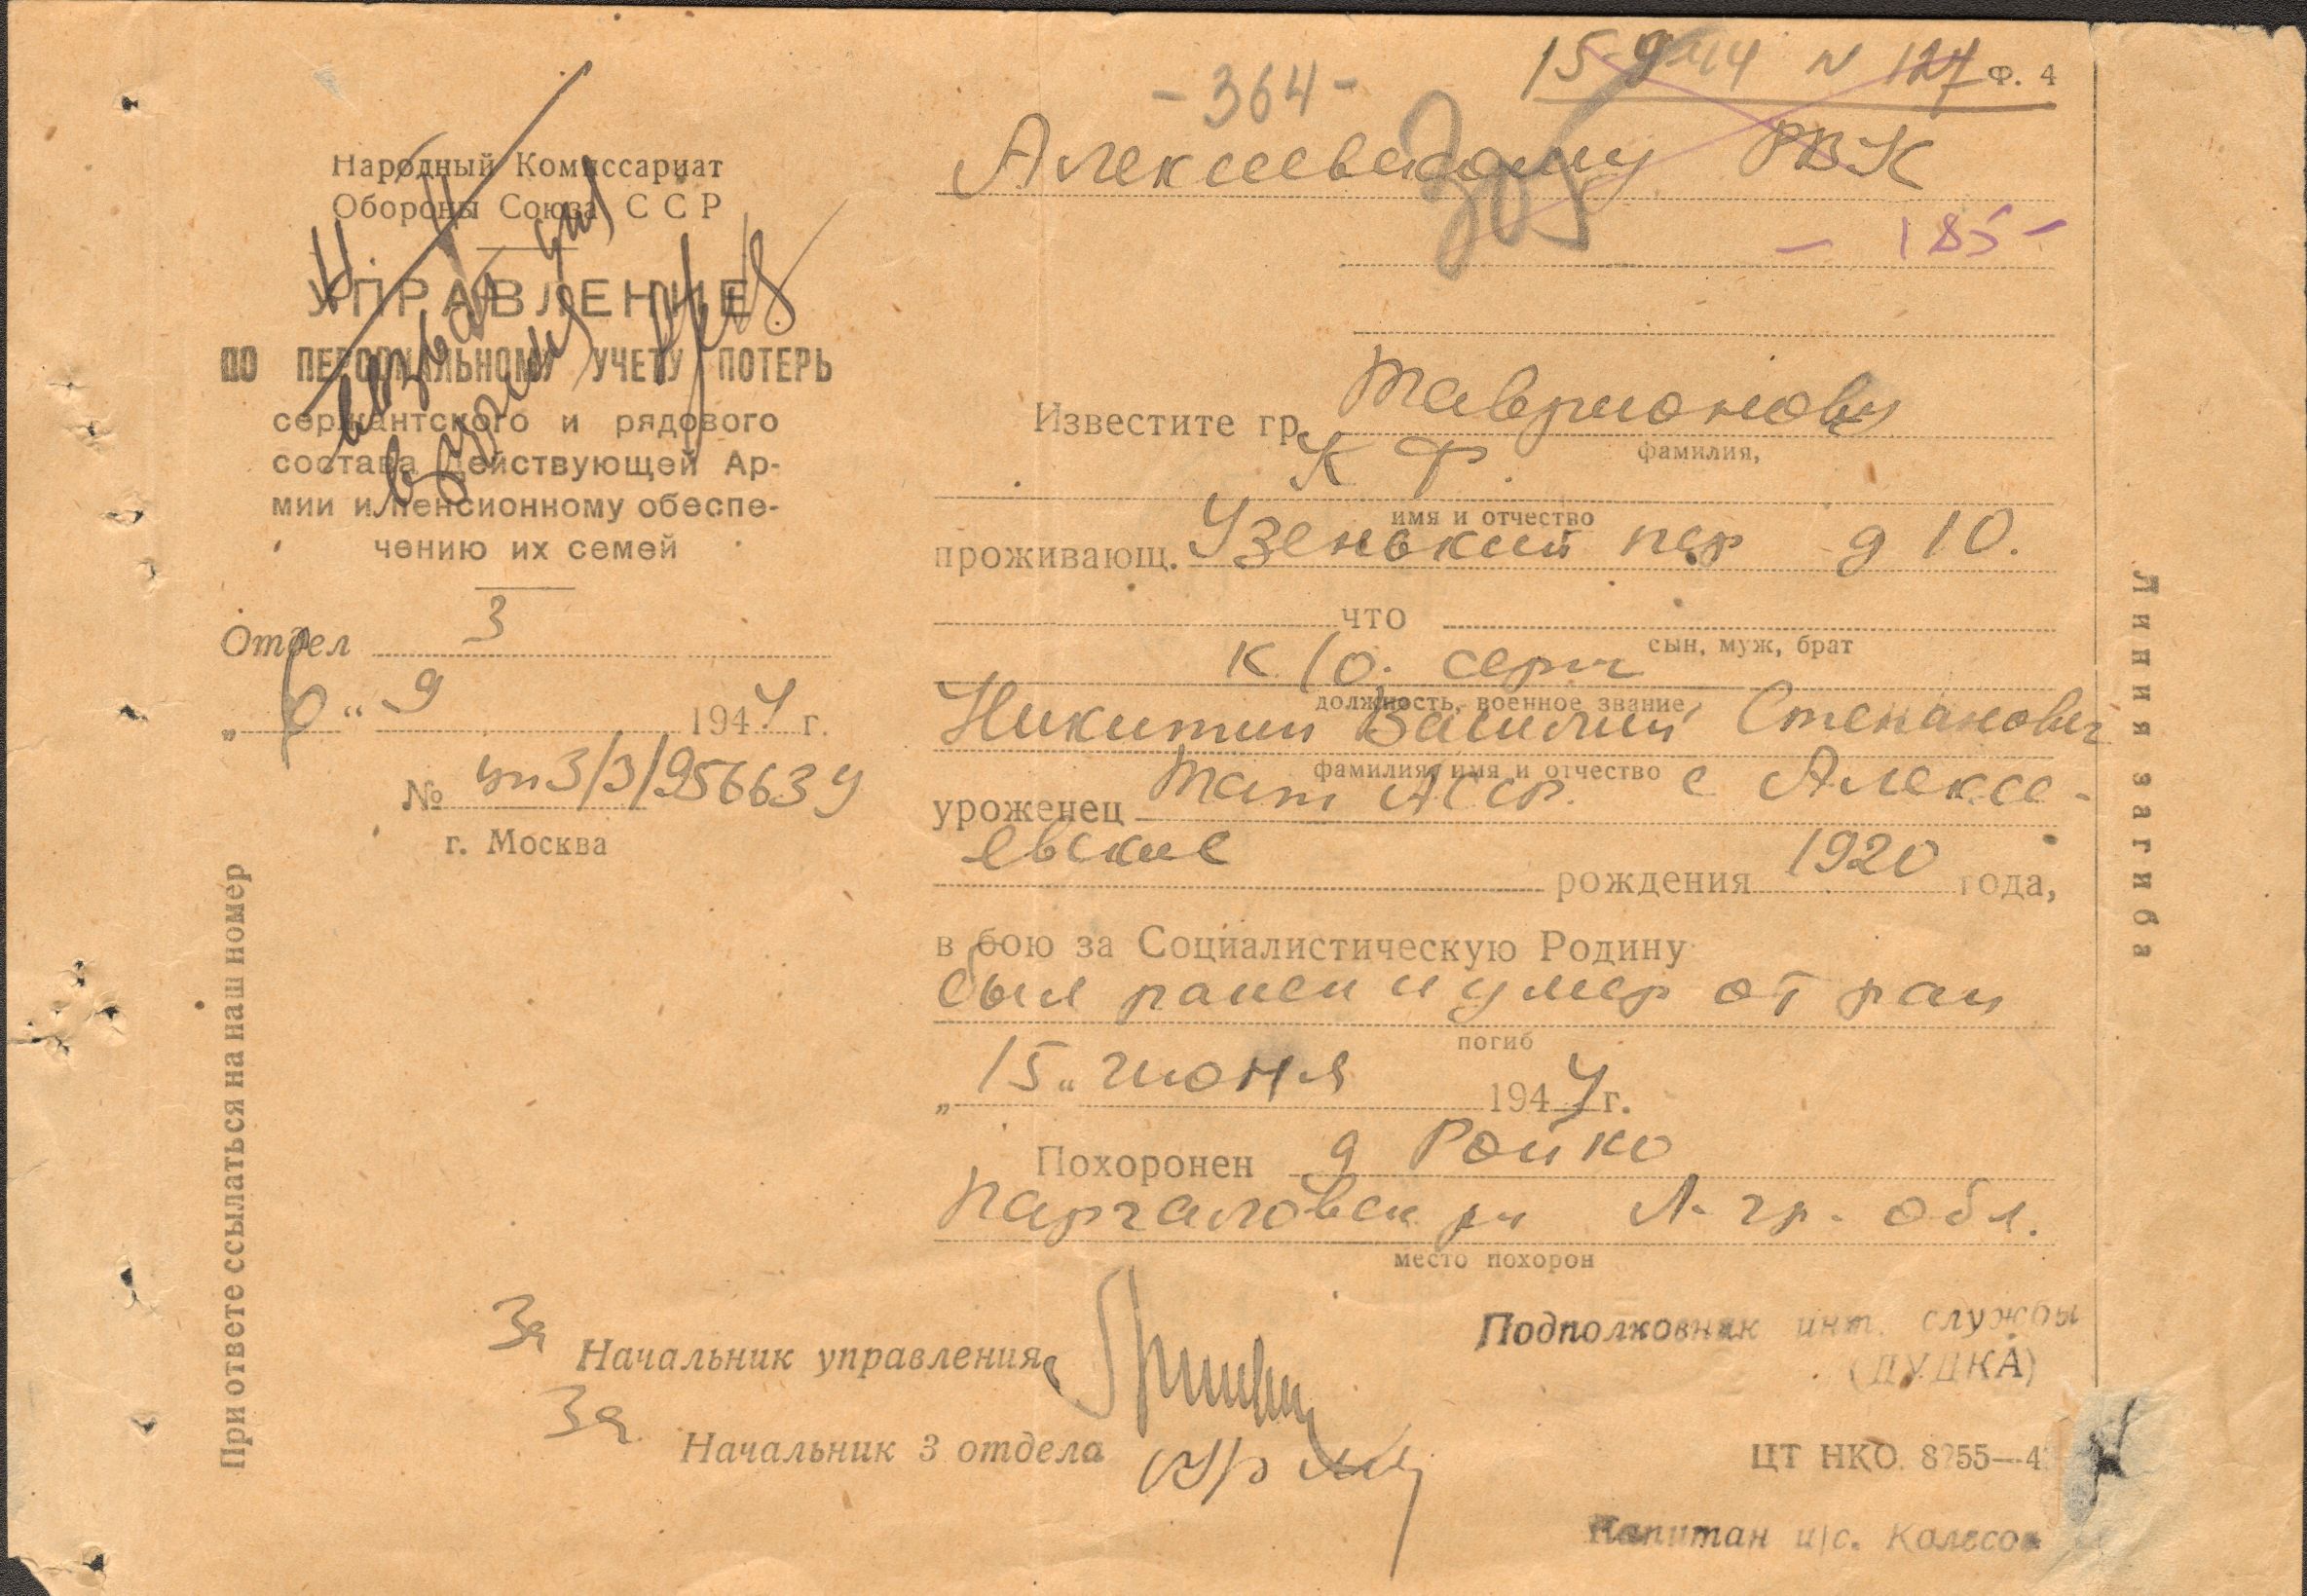 15 9 44 N 127 Ф. 4
- 364 -
Алексеевскому РВК
305
- 185 -
Народный Комиссариат
Обороны Союза ССР
УПРАВЛЕНИЕ
ПО ПЕРСОНАЛЬНОМУ УЧЕТУ ПОТЕРЬ
сержантского и рядового
состава Действующей Ар-
мии и пенсионному обеспе-
чению их семей
Отдел 3
" " 9 1944 г.
№ 3/3/956639
г. Москва
При ответе ссылаться на наш номер
Известите гр. Таврионову
фамилия,
К Ф.
имя и отчество
проживающ. Узенький пер д 10.
что
сын, муж, брат
к/о. серж
должность, военное звание,
Никитин Василий Степанович
фамилия, имя и отчество
уроженец Тат АССР. с Алексе-
евские
рождения 1920 года,
в бою за Социалистическую Родину
был ранен и умер от ран
погиб
„15" июня 1944 г.
Похоронен д Ройко
Парголовск рн Л-гр. обл.
место похорон
За Начальник управления
Подполковник инт. службы
(ДУДКА)
За Начальник 3 отдела
ЦТ НКО. 8255—4
Капитан и/с. Колесов
Линия загиба